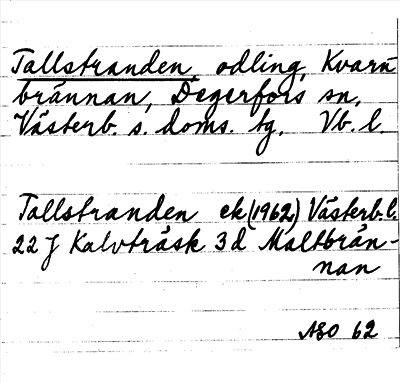 Tallstranden, odling, Kvarn
brännan, Degerfors sn,
Västerb. s. doms. tg. Vb. l.
Tallstranden ek (1962) Västerb. l.
22 J Kalvträsk 3 d Maltbrän-
nan
62